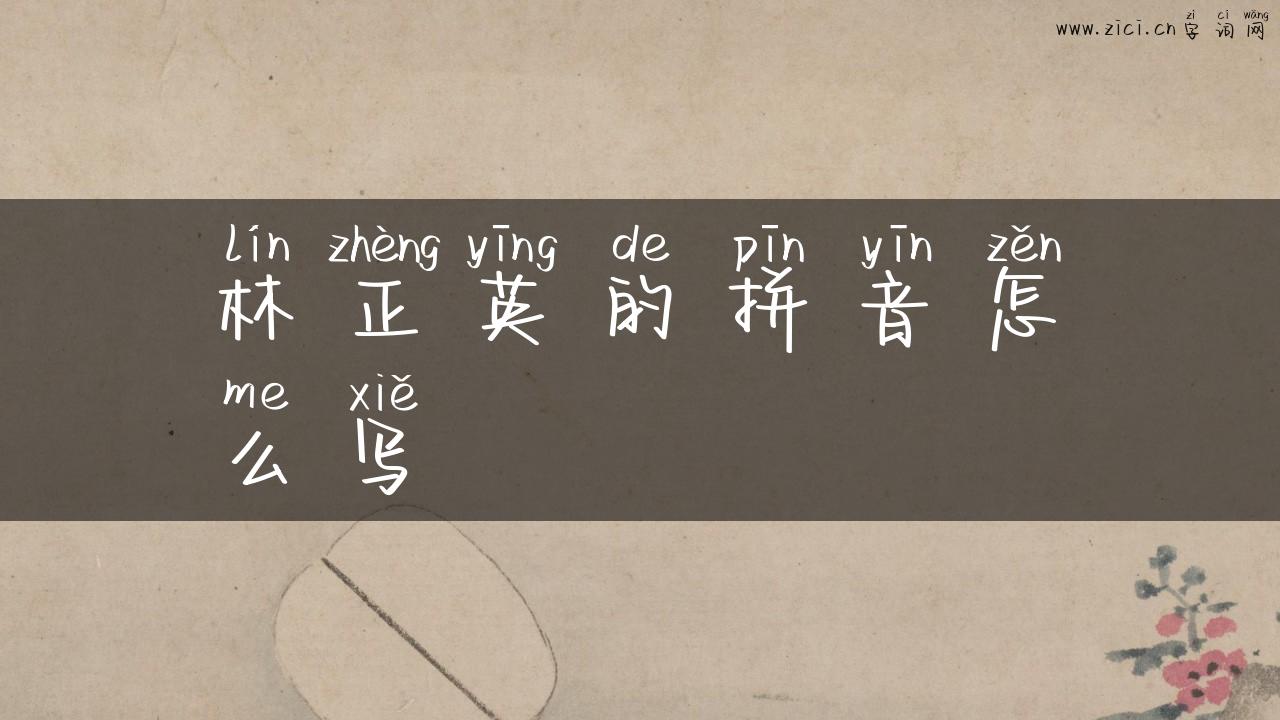 zì cí wǎng
www.zici.cn 字 词 网
lín zhèng yīng de pīn yīn zěn
林 正 英 的 拼 音 怎
me xiě
么 写